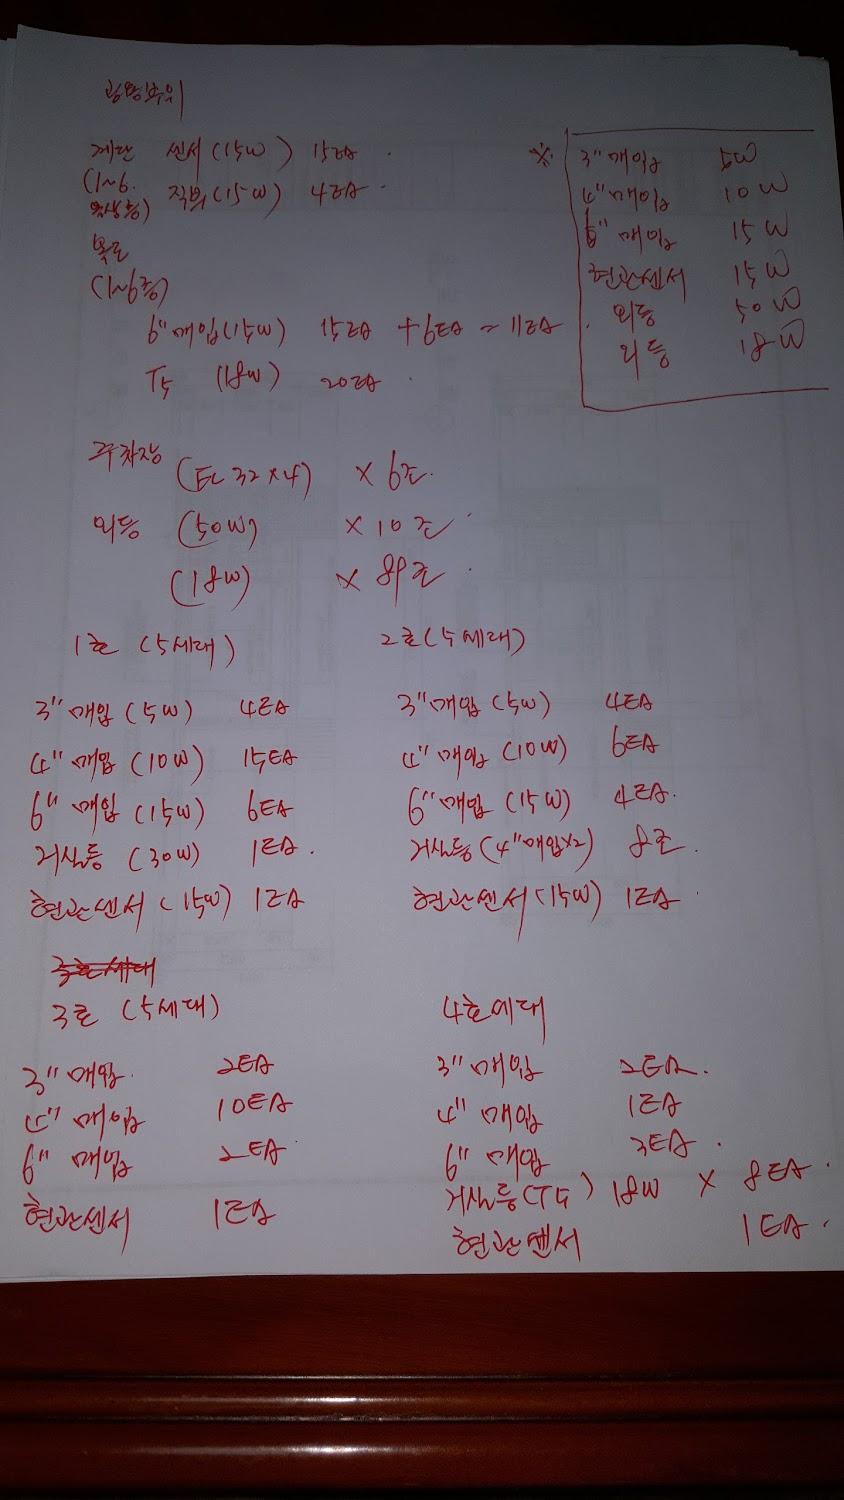 계단 센서 (15W) 15EA
(1~6. 직부 (15W) 4EA
옥상층)
복도
(1~6층)
6" 매입 (15W) 15EA + 6EA = 11EA
T5 (18W) 20EA
※ 3" 매입 5W
4" 매입 10W
6" 매입 15W
현관센서 15W
외등 50W
외등 18W
주차장 (EL 32×4) × 6조
외등 (50W) × 10조
(18W) × 89조
1호 (5세대)
3" 매입 (5W) 4EA
4" 매입 (10W) 15EA
6" 매입 (15W) 6EA
거실등 (30W) 1EA
현관센서 (15W) 1EA
2호 (5세대)
3" 매입 (5W) 4EA
4" 매입 (10W) 6EA
6" 매입 (15W) 4EA
거실등 (4" 매입×2) 8조
현관센서 (15W) 1EA
3호 (5세대)
3" 매입 2EA
4" 매입 10EA
6" 매입 2EA
현관센서 1EA
4호세대
3" 매입 2EA
4" 매입 1EA
6" 매입 3EA
거실등 (T5) 18W × 8EA
현관센서 1EA